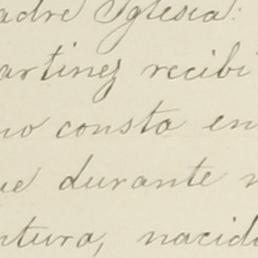 adre Iglesia:
artinez recibi
no consta en
ue durante
ntura, nacid